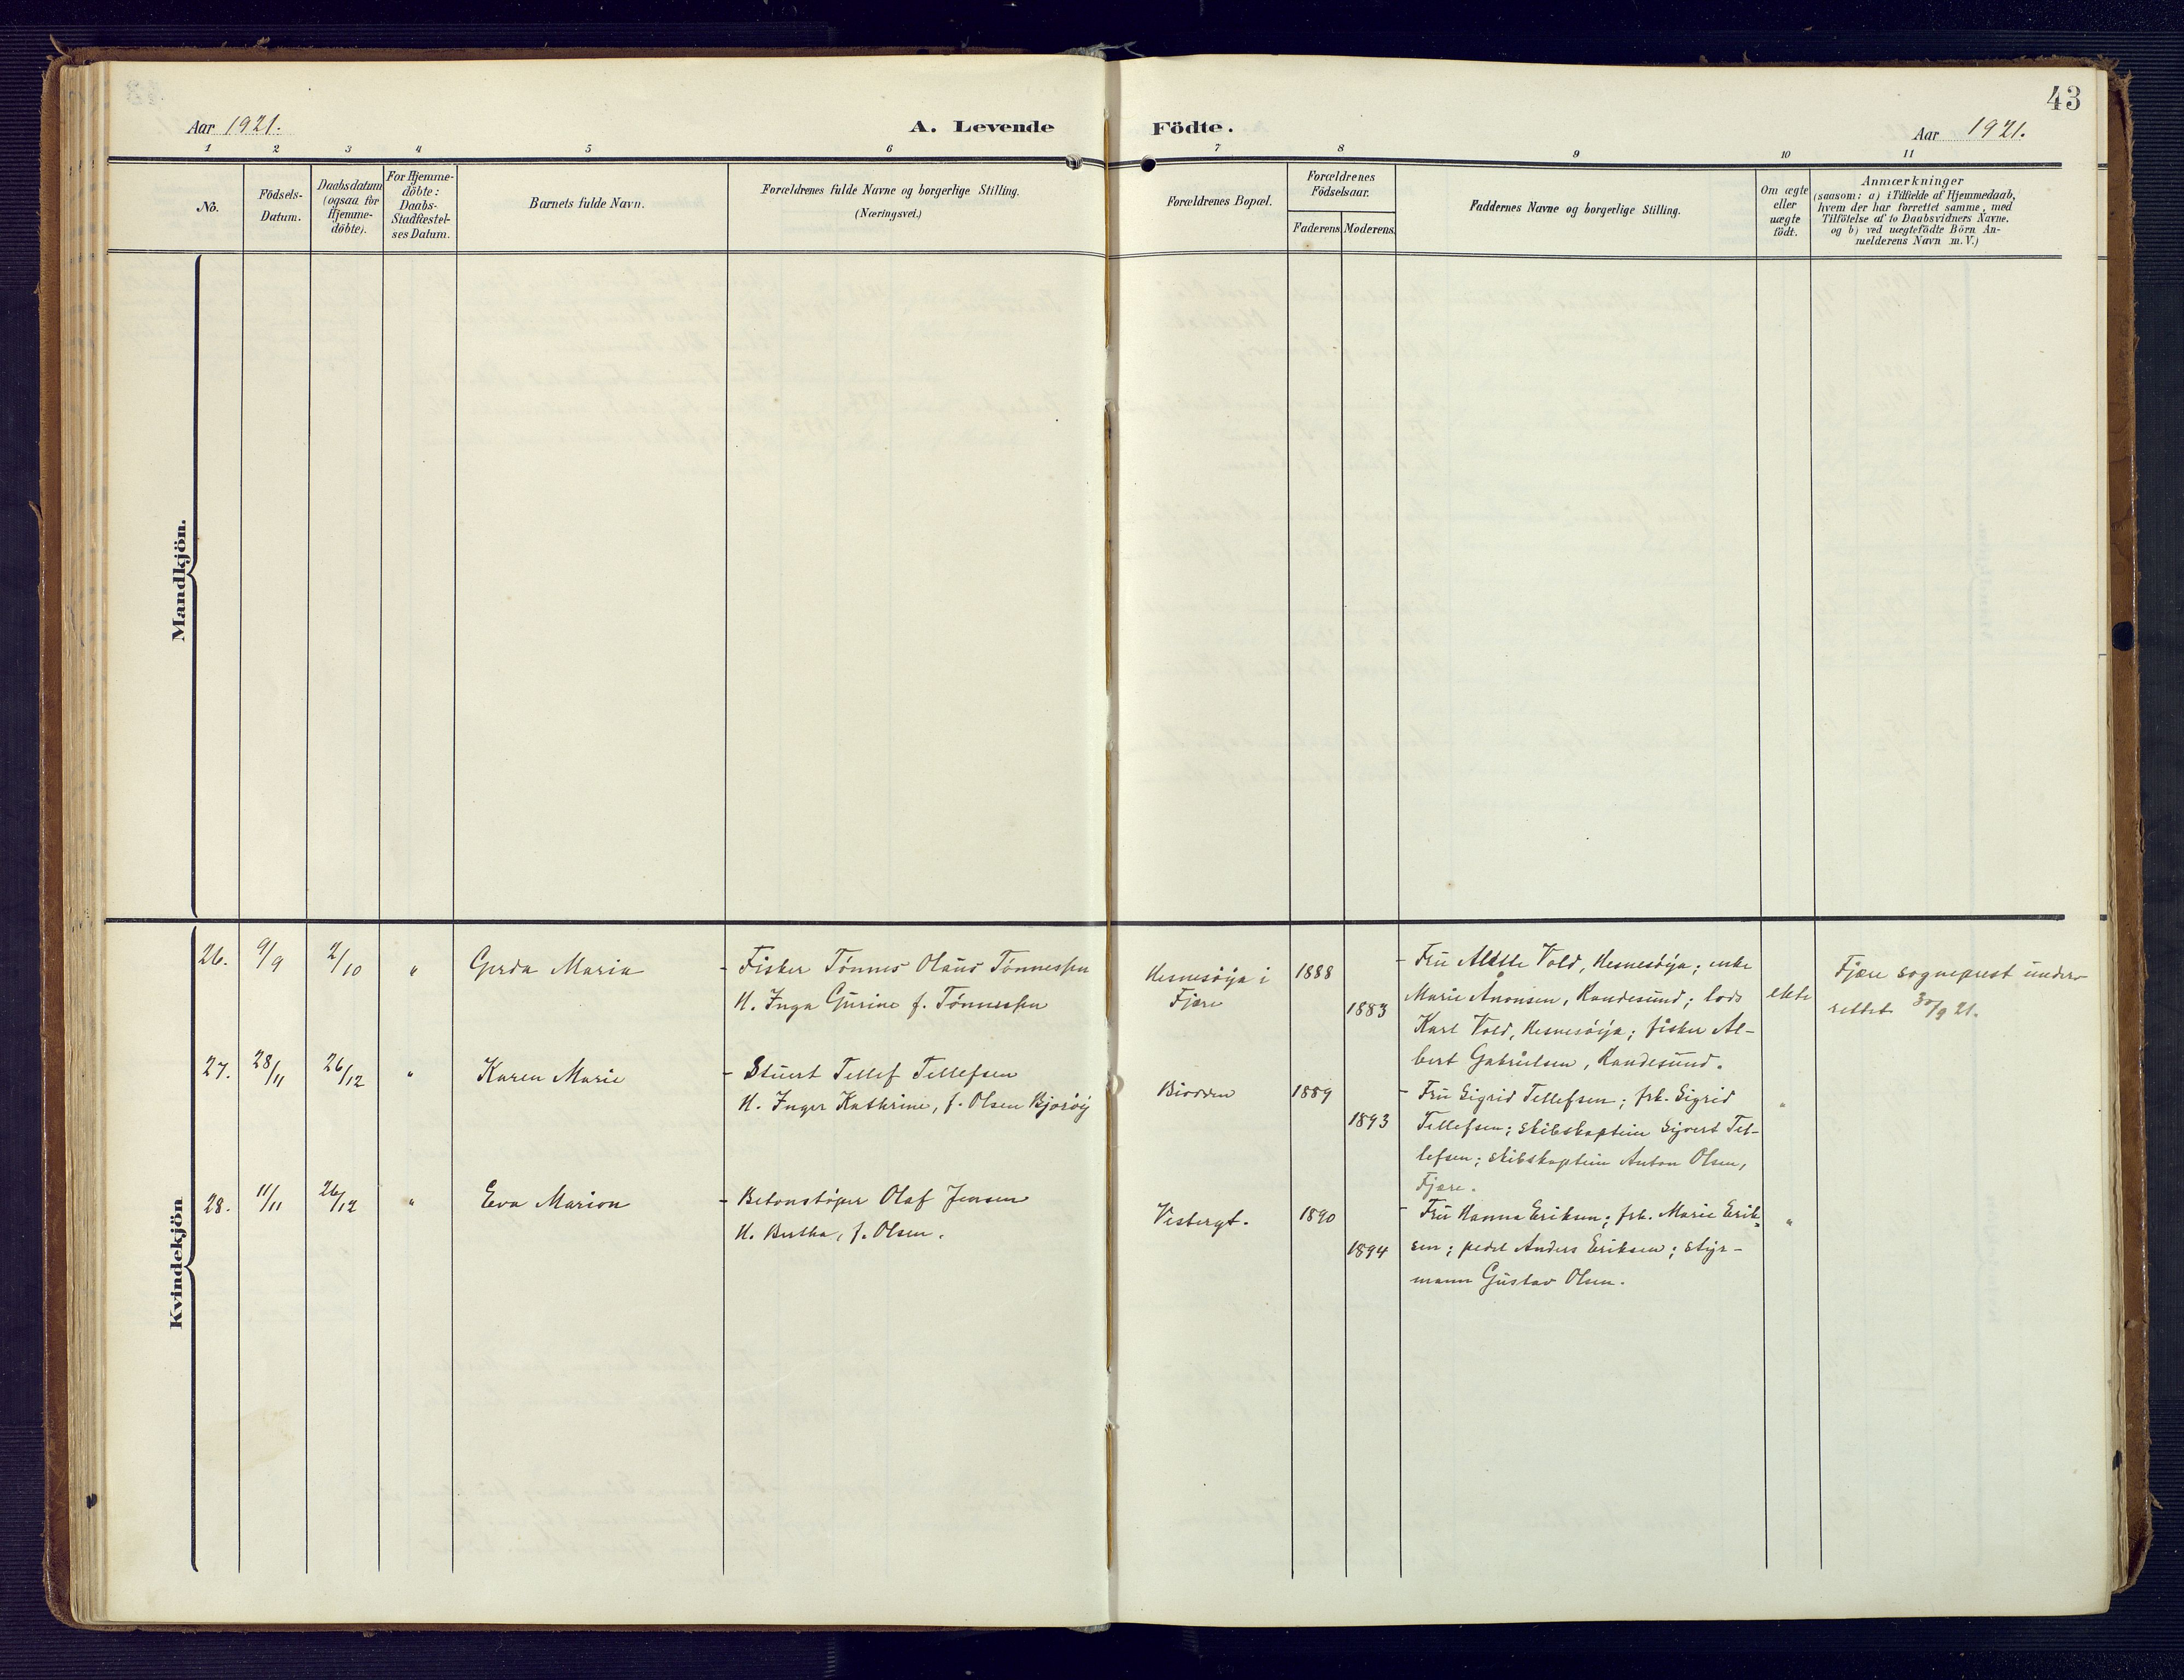 43
Aar 1921.
A. Levende Födte.
Aar 1921.
1 2 3 4 5 6 7 8 9 10 11
No.
Födsels-
Datum.
Daabsdatum
(ogsaa for
Hjemme-
döbte).
For Hjemme-
döbte:
Daabs-
Stadfæstel-
ses Datum.
Barnets fulde Navn.
Forældrenes fulde Navne og borgerlige Stilling.
(Næringsvei.)
Forældrenes Bopæl.
Forældrenes
Födselsaar.
Faderens. Moderens.
Faddernes Navne og borgerlige Stilling.
Om ægte
eller
uægte
födt.
Anmærkninger
(saasom: a) i Tilfælde af Hjemmedaab,
hvem der har forrettet samme, med
Tilföielse af to Daabsvidners Navne.
og b) ved uægtefödte Börn An-
melderens Navn m. V.)
Mandkjön.
Kvindekjön
26. 9/9 2/10 "
Gerda Maria
- Fisker Tönnes Olaus Tönnessen
H. Inga Gurine f. Tönnessen
Hesnesöya i
Fjære
1888
1883
- Fru Vold, Hesnesöya; enke
Marie Aronsen, Randesund; lods
Karl Vold, Hesnesöya; fisker Al-
bert Gabrielsen, Randesund.
ekte
Fjære sogneprest under-
rettet 30/9 21.
27. 28/11 26/12 "
Karen Marie
- Stuert Tellef Tellefsen
H. Inger Kathrine, f. Olsen Bjoröy
Biodden
1889
1893
- Fru Sigrid Tellefsen; frk. Sigrid
Tellefsen; skibskaptein Sivert Tel-
lefsen; skibskaptein Anton Olsen,
Fjære.
"
28. 11/11 26/12 "
Eva Marion
- Betonstöper Olaf Jensen
H. Bertha, f. Olsen.
Vestergt.
1890
1894
- Fru Hanna Eriksen; frk. Marie Erik-
sen; pedel Anders Eriksen; styr-
mann Gustav Olsen.
"